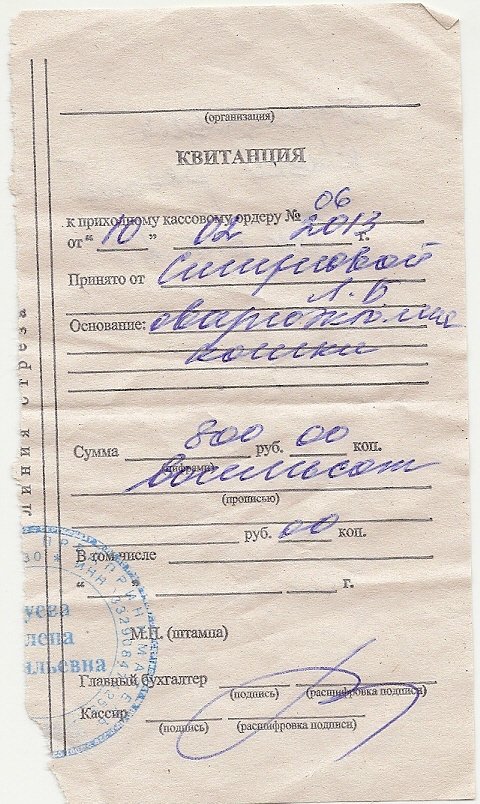 (организация)
КВИТАНЦИЯ
к приходному кассовому ордеру № 06
от “ 10 ” 02 2013 г.
Принято от Смирновой
Л. В
Основание:
кошки
Сумма 800 руб. 00 коп.
(цифрами)
Восемьсот
(прописью)
руб. 00 коп.
В том числе
“ ” г.
М.П. (штампа)
Главный бухгалтер
(подпись) (расшифровка подписи)
Кассир
(подпись) (расшифровка подписи)
Линия отреза
ПРЕДПРИНИМАТЕ
ИНН 3329084
уева
лена
альевна